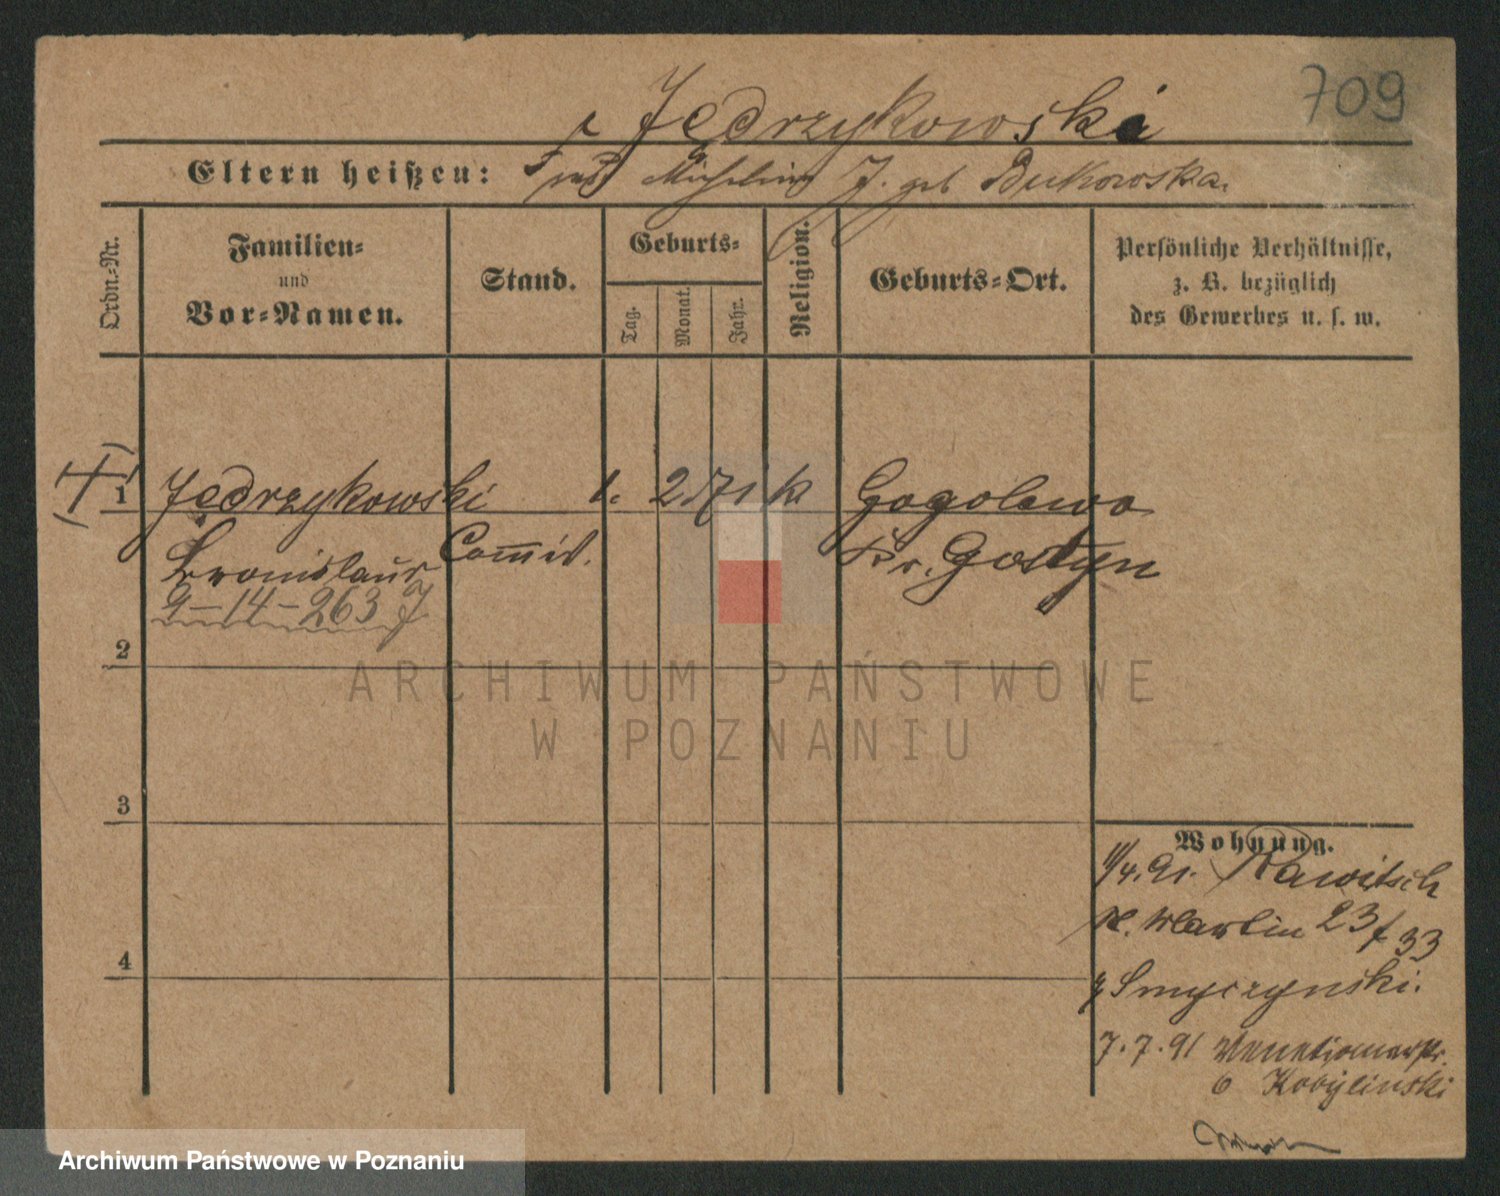 709
Jedrzykowski
Eltern heißen: und J. geb Bukowska.
Ordn.-Nr.
Familien-
und
Vor-Namen.
Stand.
Geburts-
Tag.
Monat.
Jahr.
Religion.
Geburts-Ort.
Persönliche Verhältnisse,
z. B. bezüglich
des Gewerbes u. s. w.
1 Jedrzykowski 1. 2 71 k Gogolewo
Bronislaus Comis. Kr. Gostyn
9-14-263 J
2
ARCHIWUM PAŃSTWOWE
W POZNANIU
3
Wohnung.
11/4.91. Rawitsch
St. Martin 23 f 33
Smyczynski.
4
7.7.91
Kobylinski
Archiwum Państwowe w Poznaniu